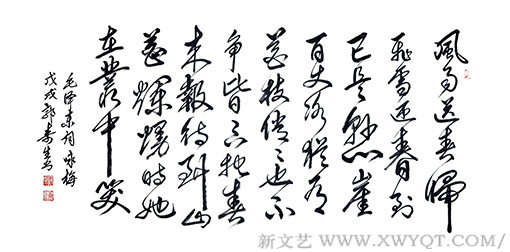 風雨送春歸
飛雪迎春到
已是懸崖
百丈冰猶有
花枝俏〻也不
争春只把春
来報待到山
花爛熳時她
在叢中笑
毛泽东词咏梅
戊戌郭
新文艺 WWW.XWYQT.COM/